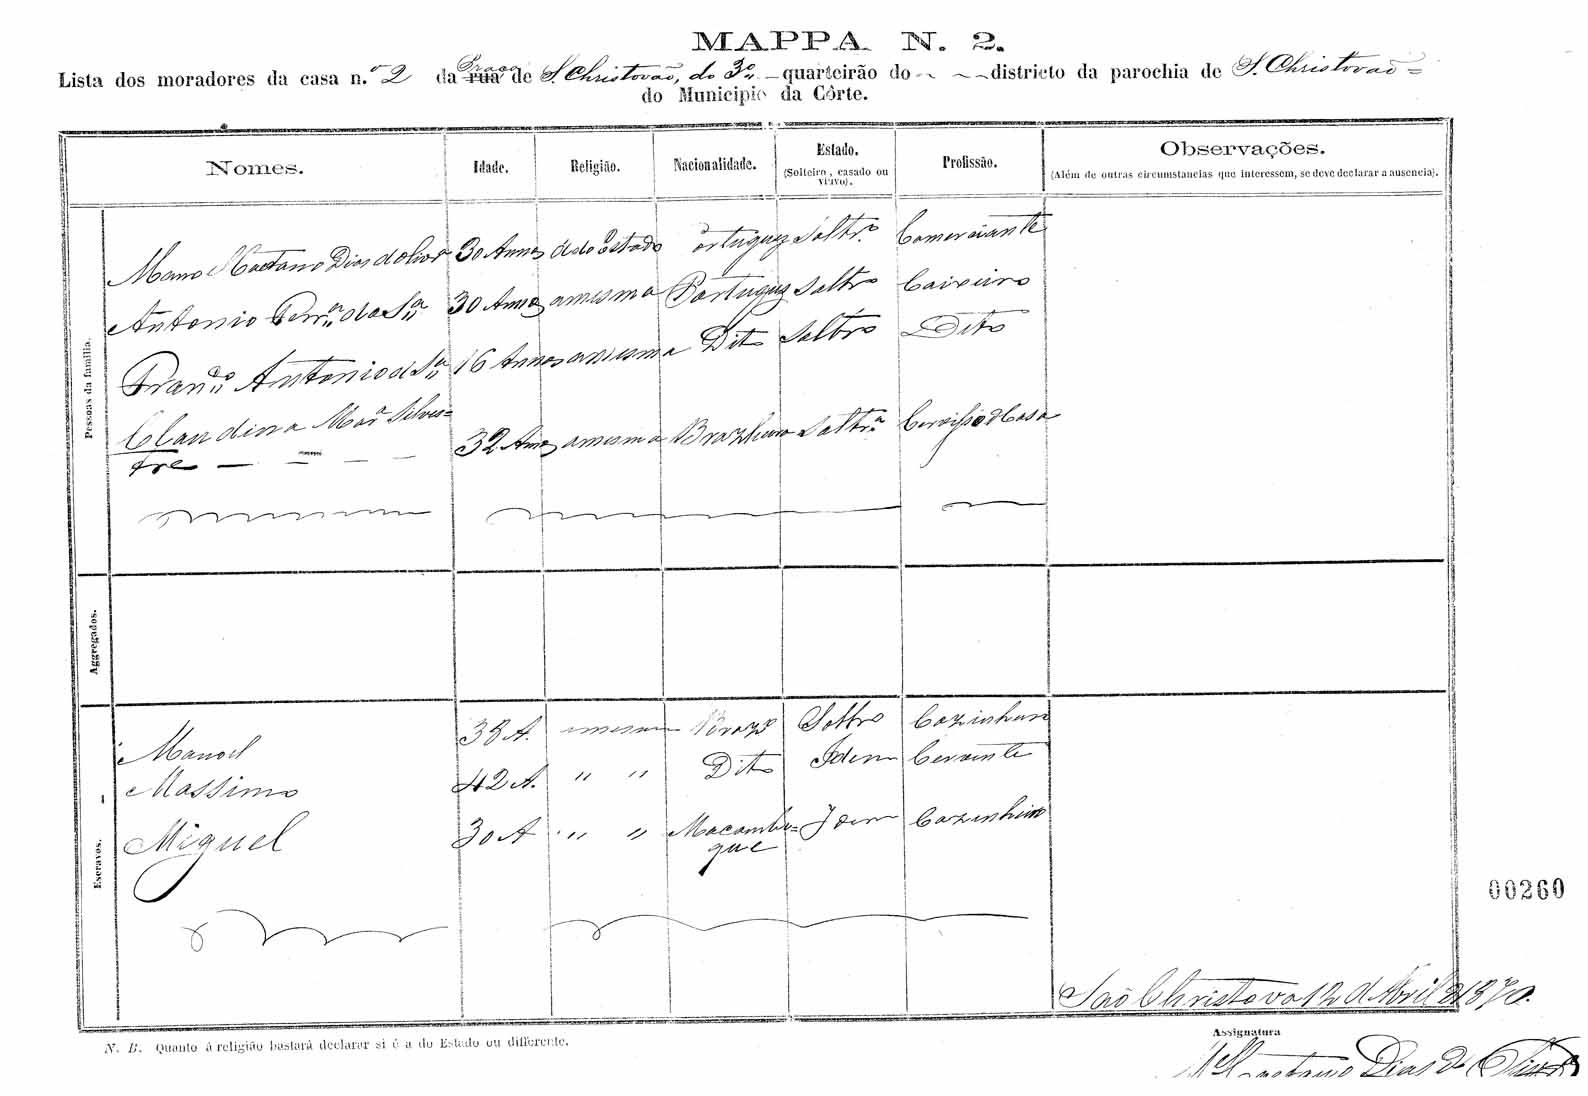 MAPPA N. 2.
Lista dos moradores da casa n.º 2 da Praça rua de S. Christovão, do 3º quarteirão do districto da parochia de S. Christovão
do Municipio da Côrte.
Nomes. Idade. Religião. Nacionalidade. Estado. (Solteiro, casado ou viuvo). Profissão. Observações. (Além de outras circumstancias que interessem, se deve declarar a ausencia).
Pessoas da familia.
Caetano Dias 30 Annos do Estado Portuguez Soltrº Comerciante
Antonio Ferrª da Sª 30 Annos amesma Portuguez Soltro Caixeiro
Francº Antonio d Sª 16 Annos amesma Dito Soltro Dito
Claudina Marª Silves=
tre 32 Annos amesma Brazileira Soltrª Cerviço d Casa
Aggregados.
Escravos.
Manoel 38 A. amesma Braz Soltro Cozinheiro
Massimo 42 A. " " Dito Idem Cervente
Miguel 30 A " " Macambi=
que Idem Cozinheiro
00260
São Christovao 12 d Abril d 1870.
N. B. Quanto á religião bastará declarar si é a do Estado ou differente.
Assignatura
Caetano Dias de